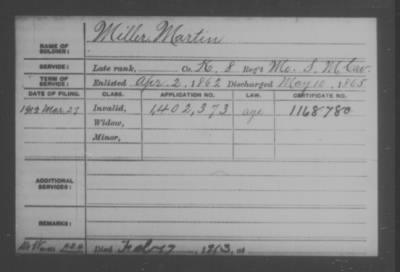 NAME OF SOLDIER: Miller Martin
SERVICE: Late rank, Co. K. 8 Reg't Mo. S. M Cav.
TERM OF SERVICE: Enlisted Apr. 2, 1862 Discharged May 10, 1865
DATE OF FILING. CLASS. APPLICATION NO. LAW. CERTIFICATE NO.
1912 Mar. 27 Invalid, 1,402,373 age 1168780
Widow,
Minor,
ADDITIONAL SERVICES:
REMARKS:
Died Feb 7, 1913, at